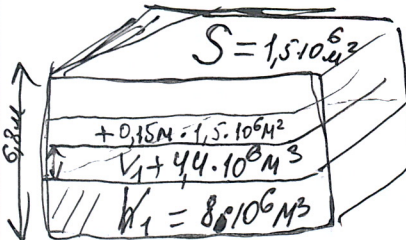 S = 1,5·10⁶ м²
6,8м
+0,15м·1,5·10⁶м²
V₁+4,4·10⁶м³
W₁ = 8·10⁶м³